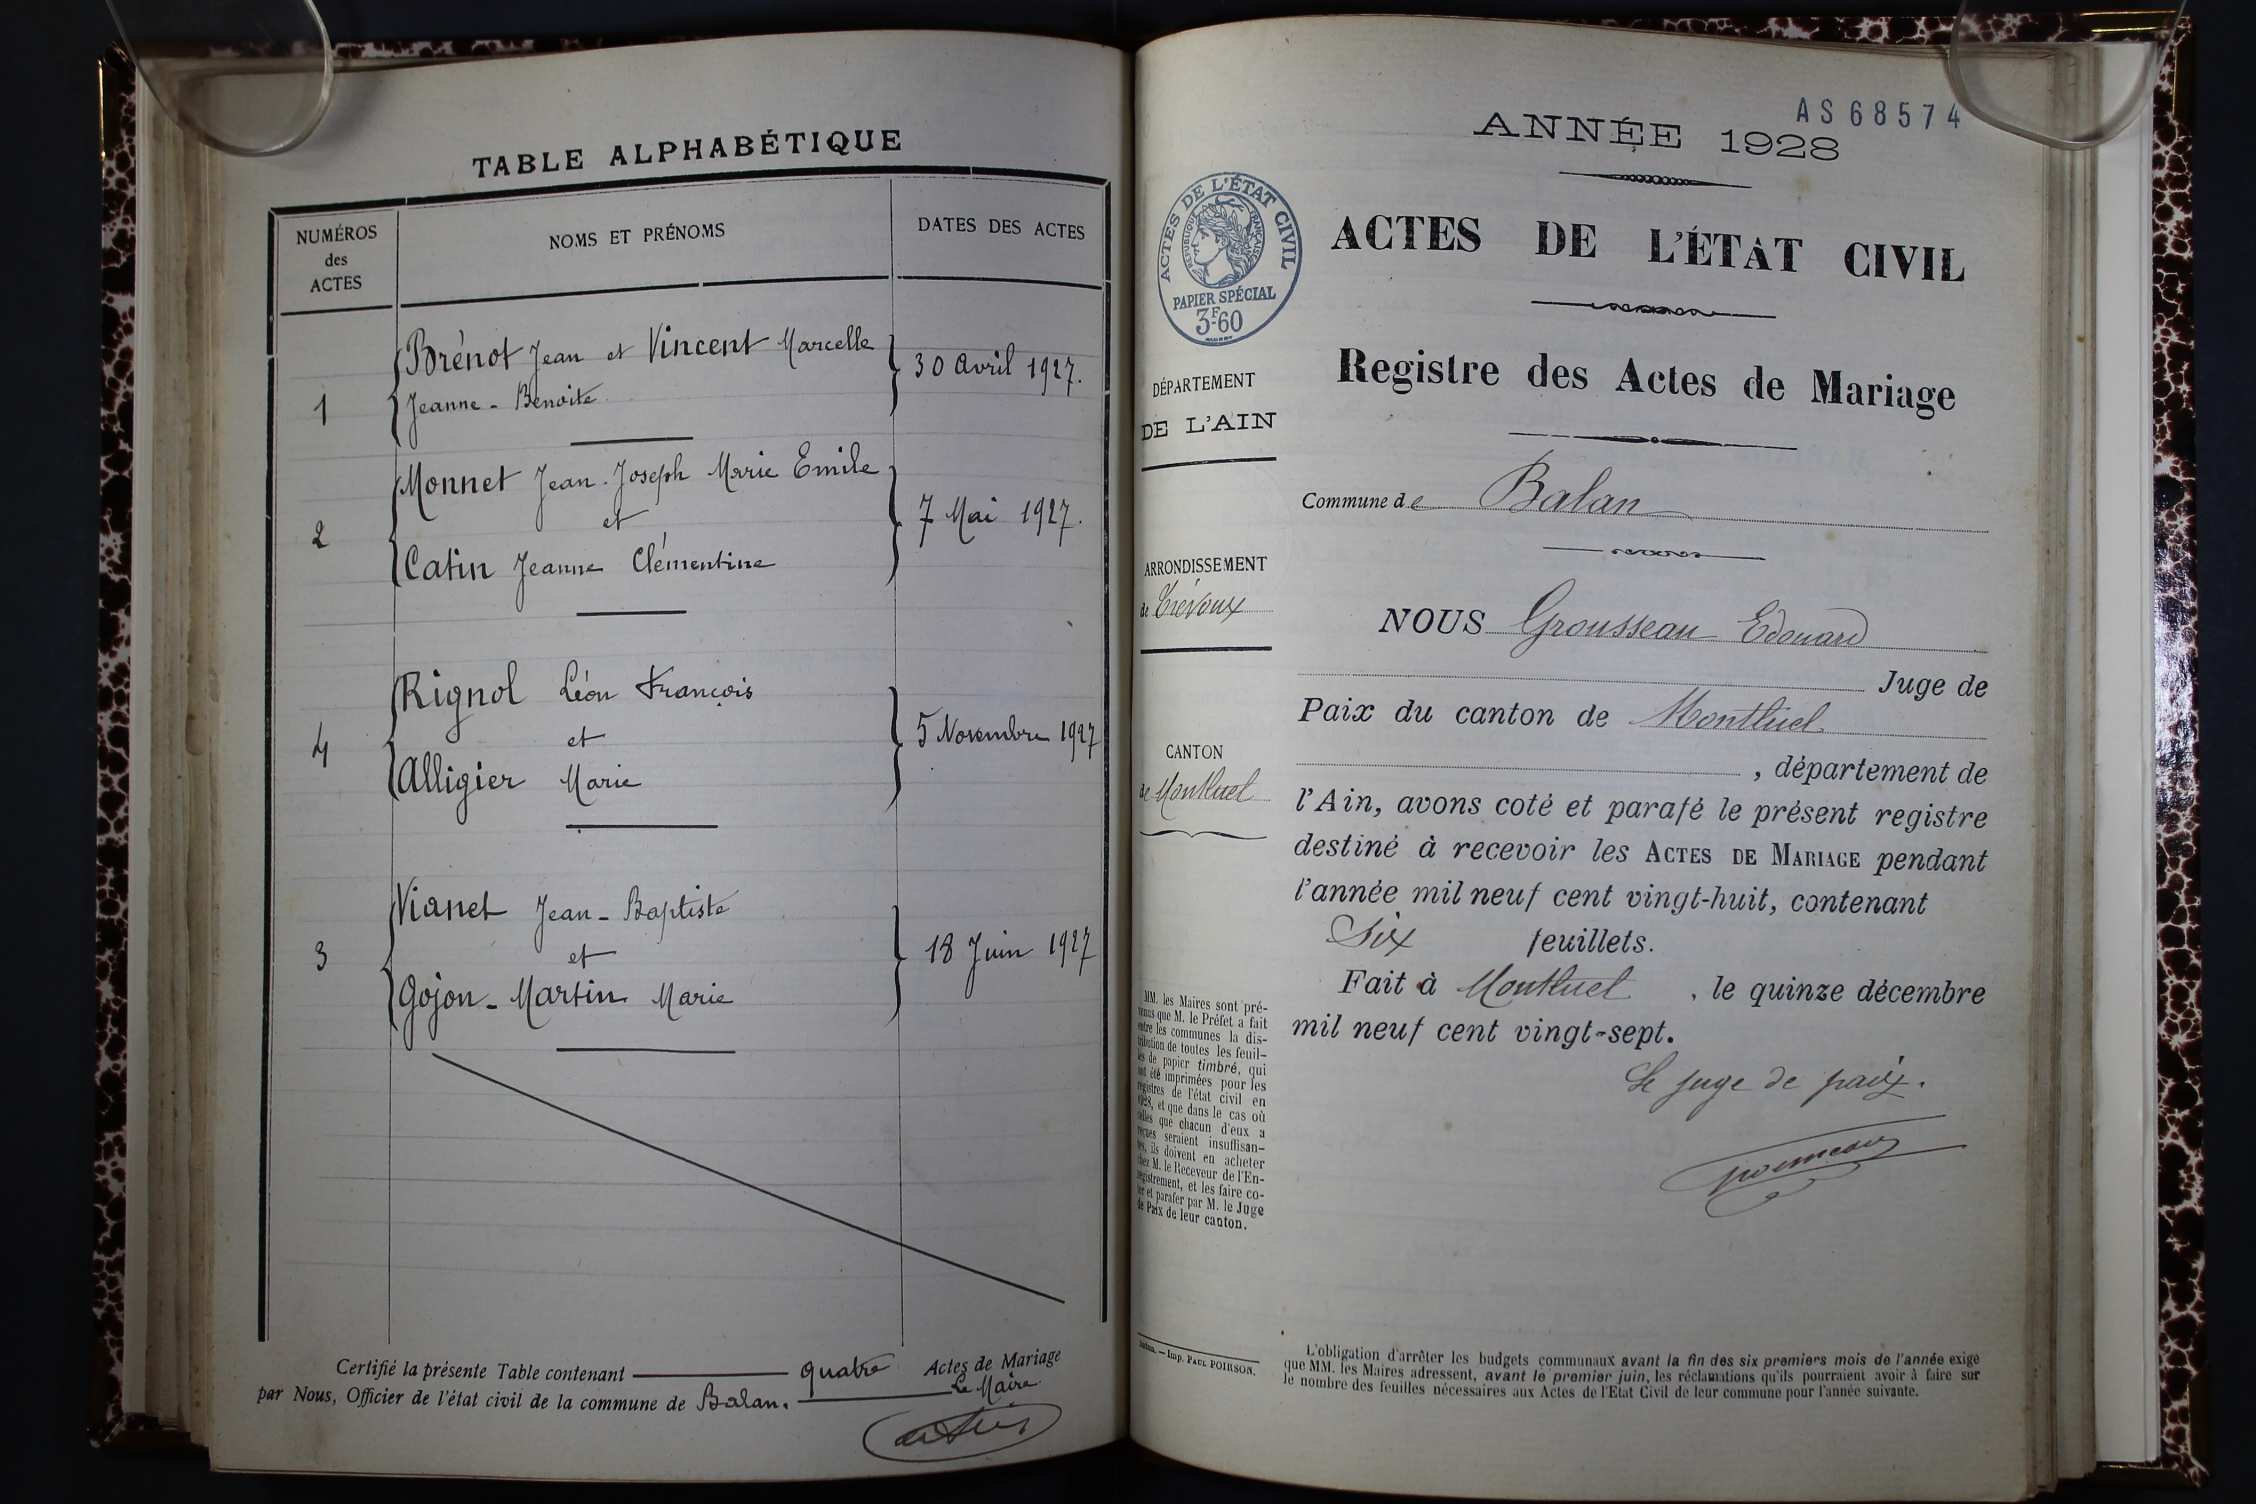 TABLE ALPHABÉTIQUE
NUMÉROS des ACTES
NOMS ET PRÉNOMS
DATES DES ACTES
1
Brénot Jean et Vincent Marcelle
Jeanne - Benoite
30 Avril 1927.
2
Monnet Jean-Joseph Marie Emile
et
Catin Jeanne Clémentine
7 Mai 1927.
4
Rignol Léon François
et
Alligier Marie
5 Novembre 1927
3
Vianet Jean-Baptiste
et
Gojon-Martin Marie
18 Juin 1927
Certifié la présente Table contenant quatre Actes de Mariage
par Nous, Officier de l'état civil de la commune de Balan.
Le Maire
AS 68574
ANNÉE 1928
ACTES DE L'ÉTAT CIVIL
RÉPUBLIQUE FRANÇAISE
PAPIER SPÉCIAL
3F-60
ACTES DE L'ÉTAT CIVIL
Registre des Actes de Mariage
DÉPARTEMENT
DE L'AIN
Commune de Balan
ARRONDISSEMENT
de Trévoux
CANTON
de Montluel
NOUS Grousseau Edouard
Juge de
Paix du canton de Montluel
, département de
l'Ain, avons coté et parafé le présent registre
destiné à recevoir les ACTES DE MARIAGE pendant
l'année mil neuf cent vingt-huit, contenant
Six feuillets.
Fait à Montluel, le quinze décembre
mil neuf cent vingt-sept.
Le juge de paix.
MM. les Maires sont pré-
venus que M. le Préfet a fait
entre les communes la dis-
tribution de toutes les feuil-
les de papier timbré, qui
ont été imprimées pour les
registres de l'état civil en
1928, et que dans le cas où
celles que chacun d'eux a
reçues seraient insuffisan-
tes, ils doivent en acheter
chez M. le Receveur de l'En-
registrement, et les faire co-
ter et parafer par M. le Juge
de Paix de leur canton.
Imp. PAUL POIRSON.
L'obligation d'arrêter les budgets communaux avant la fin des six premiers mois de l'année exige
que MM. les Maires adressent, avant le premier juin, les réclamations qu'ils pourraient avoir à faire sur
le nombre des feuilles nécessaires aux Actes de l'Etat Civil de leur commune pour l'année suivante.